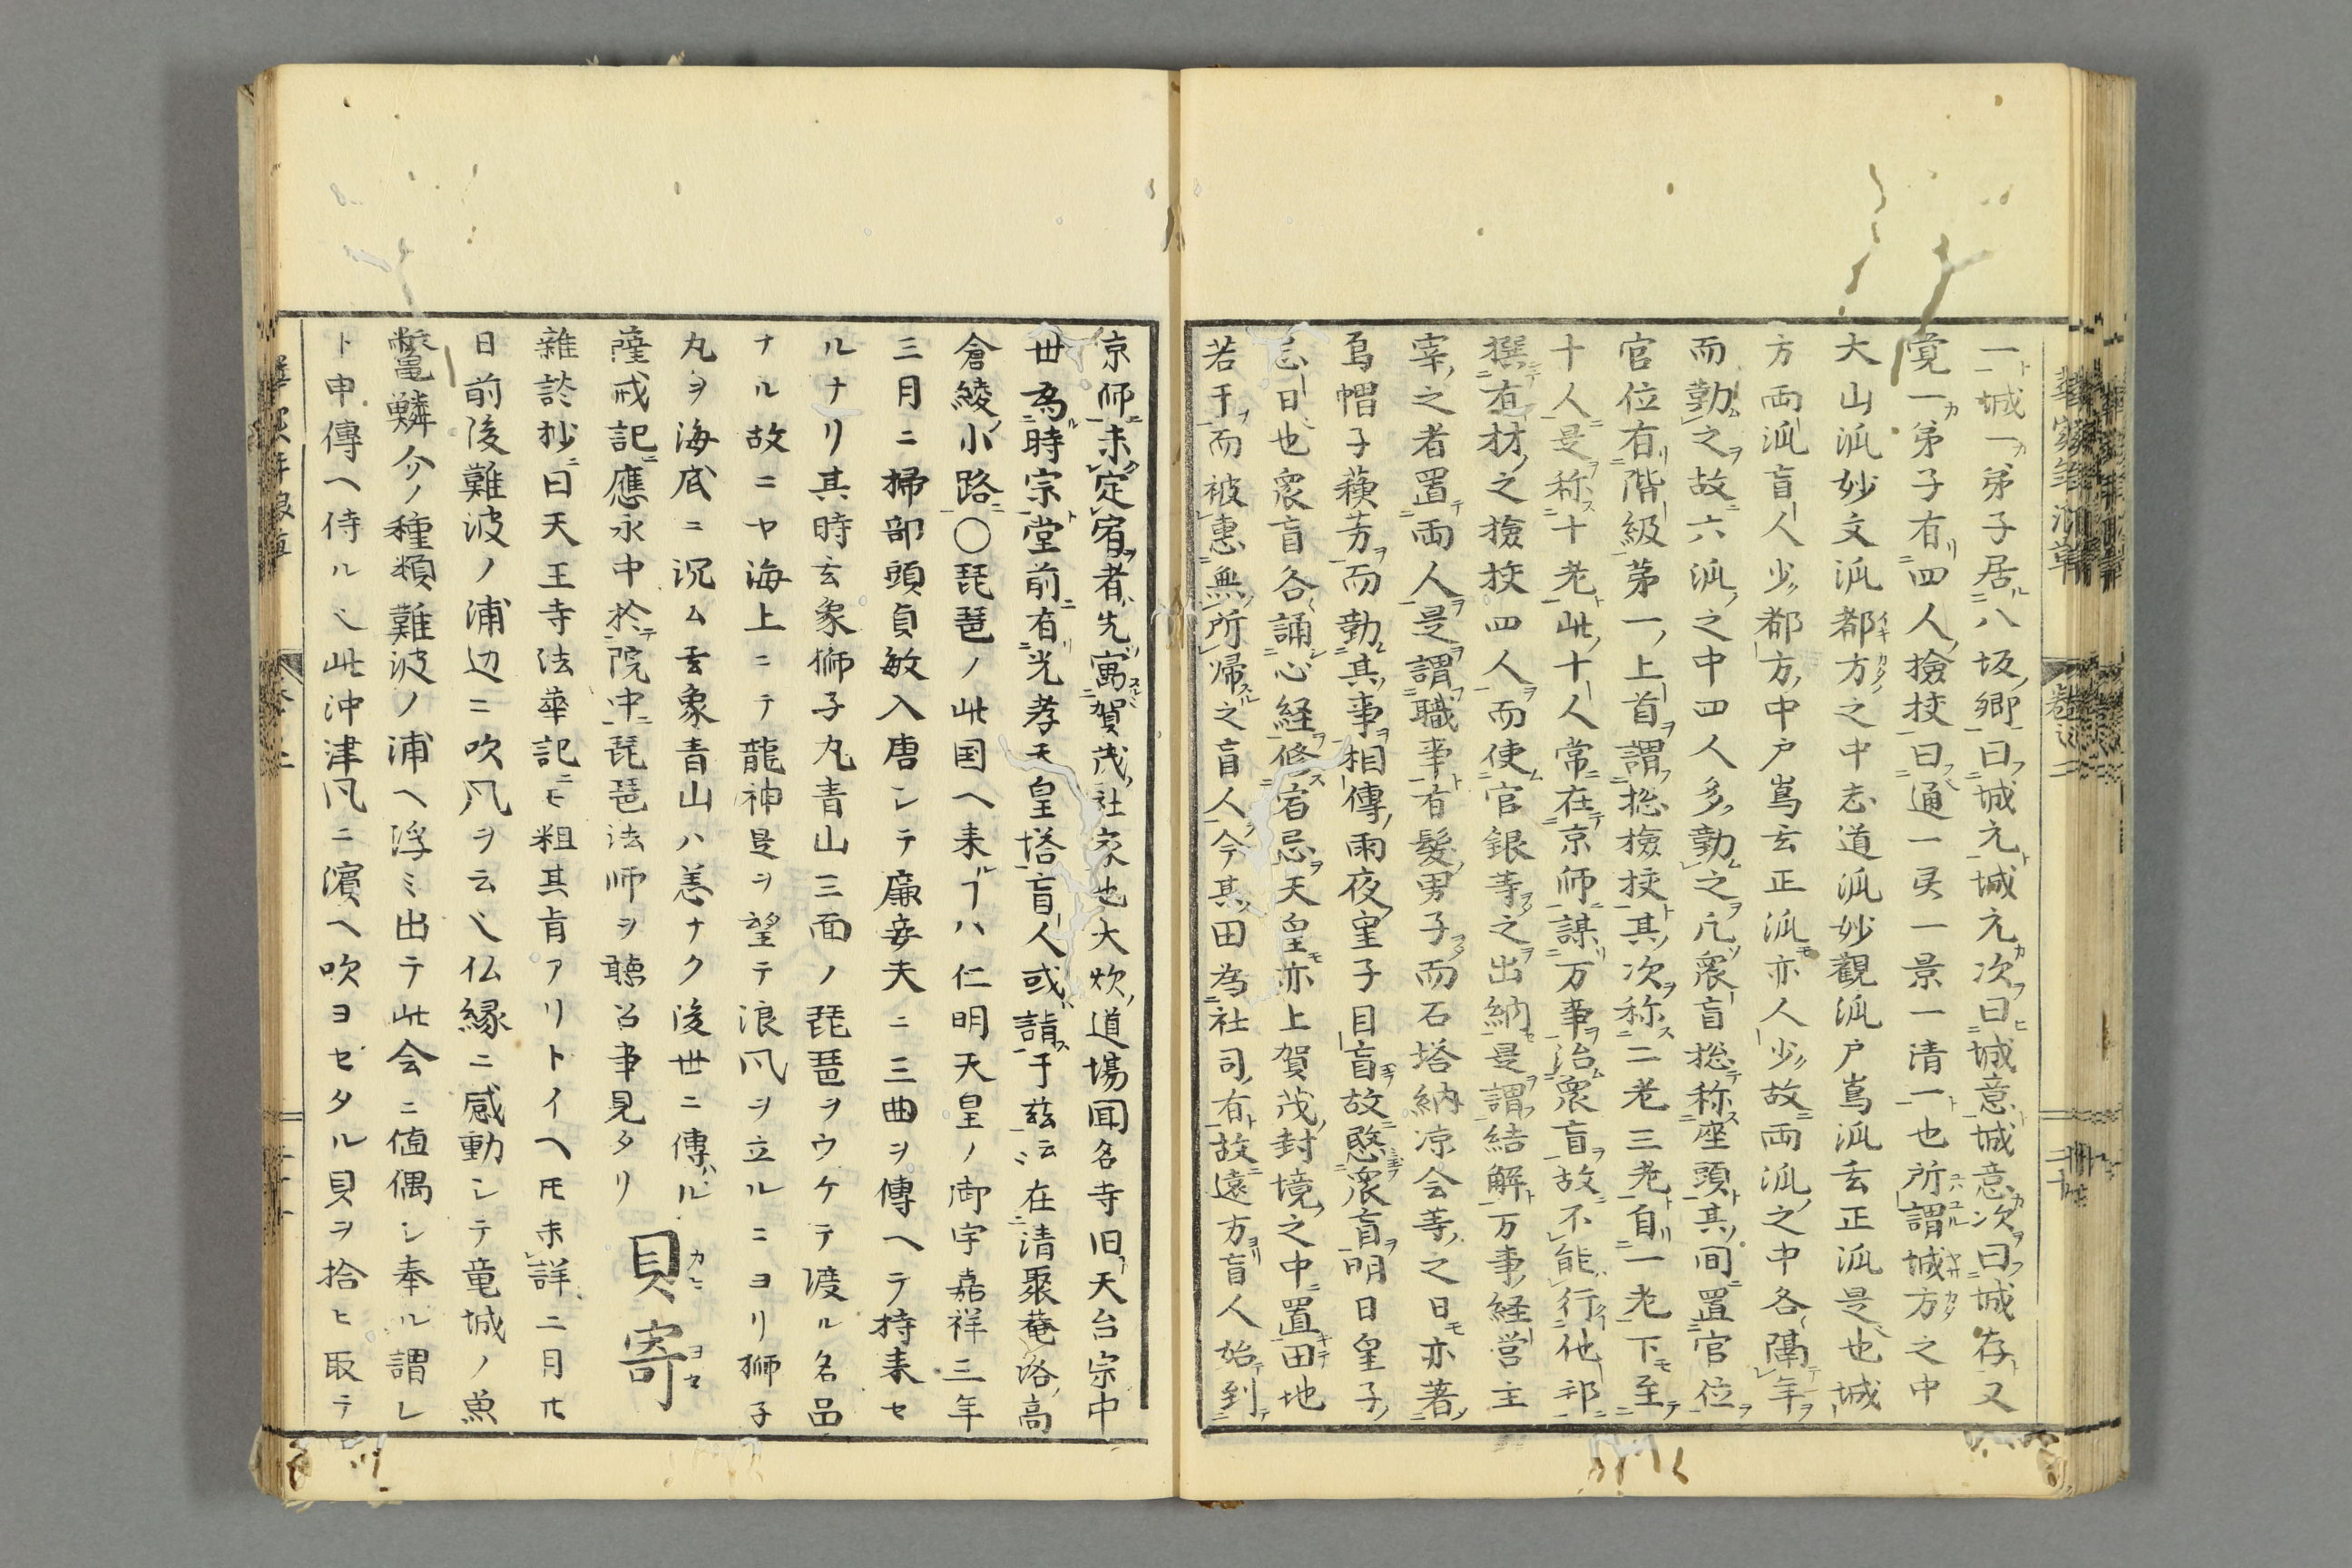 一城一弟子居八坂郷曰城元城元次曰城意城意次曰城存又
覚一弟子有四人撿挍曰通一灵一景一清一也所謂城方之中
大山泒妙文泒都方之中志道泒妙觀泒戸嶌泒玄正泒是也城
方両泒盲人少都方中戸嶌玄正泒亦人少故両泒之中各隔年
而勤之故六泒之中四人多勤之凢衆盲捴称座頭其间置官位
官位有階級第一上首謂捴撿挍其次称二老三老自一老下至
十人是称十老此十人常在京師謀万事治衆盲故不能行他邦
撰有材之撿挍四人而使官銀等之出納是謂結解万事経営主
宰之者置両人是謂職事有髪男子而石塔納凉会等之日亦著
烏帽子蘓芳而勤其事相傳雨夜皇子目盲故愍衆盲明日皇子
忌日也衆盲各誦心経修宿忌天皇亦上賀茂封境之中置田地
若于而被惠無所帰之盲人今其田為社司有故遠方盲人始到
京師未定宿者先寓賀茂社家也大炊道場聞名寺旧天台宗中
世為時宗堂前有光孝天皇塔盲人或詣于兹云在清聚菴洛高
倉綾小路〇琵琶ノ此国ヘ来ルヿハ仁明天皇ノ御宇嘉祥三年
三月ニ掃部頭貞敏入唐シテ廉妾夫ニ三曲ヲ傳ヘテ持来セ
ルナリ其時玄象獅子丸青山三面ノ琵琶ヲウケテ渡ル名品
ナル故ニヤ海上ニテ龍神是ヲ望テ浪凨ヲ立ルニヨリ獅子
丸ヲ海底ニ沉ム玄象青山ハ恙ナク後世ニ傳ハル
薩戒記應永中於院中琵琶法師ヲ聴召事見タリ 貝寄
雜談抄曰天王寺法華記ニモ粗其㫖アリトイヘ𪜈未詳二月廿
日前後難波ノ浦辺ニ吹凨ヲ云ヘ仏縁ニ感動シテ竜城ノ魚
鼈鱗介ノ種類難波ノ浦ヘ浮ミ出テ此会ニ値偶シ奉ル謂レ
ト申傳ヘ侍ルヘ此沖津凨ニ濱ヘ吹ヨセタル貝ヲ拾ヒ取テ